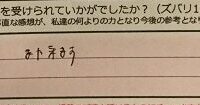 を受けられていかがでしたか？（ズバリ1
直な感想が、私達の何よりの力となり今後の参考とな
また来ます